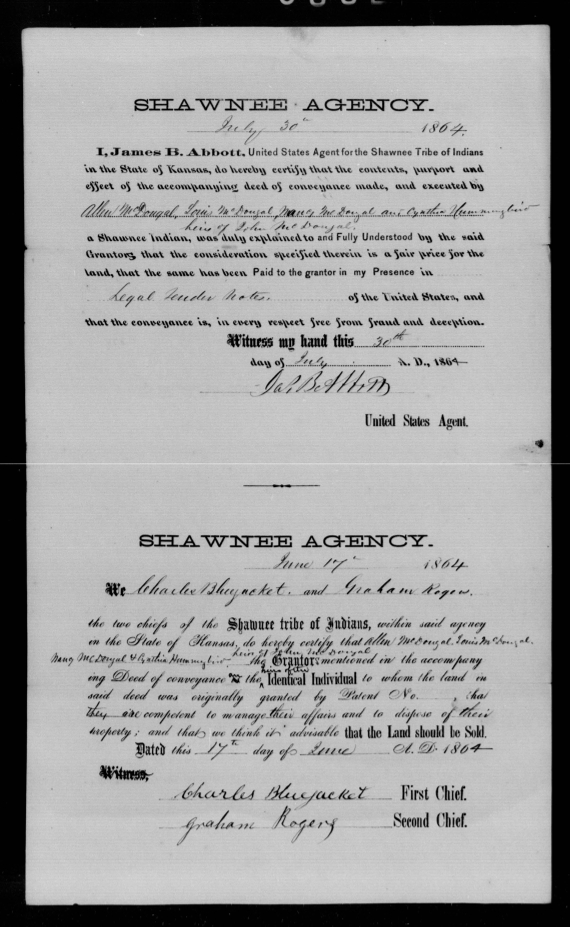 SHAWNEE AGENCY.
July 30th 1864.
I, James B. Abbott, United States Agent for the Shawnee Tribe of Indians
in the State of Kansas, do hereby certify that the contents, purport and
effect of the accompanying deed of conveyance made, and executed by
Allen McDougal, Louis McDougal, Nancy McDougal and Cynthia Hummingbird
heirs of John McDougal.
a Shawnee Indian, was duly explained to and Fully Understood by the said
Grantors, that the consideration specified therein is a fair price for the
land, that the same has been Paid to the grantor in my Presence in
Legal Tender Notes. of the United States, and
that the conveyance is, in every respect free from fraud and deception.
Witness my hand this 30th
day of July A. D., 1864
Jas B Abbott
United States Agent.
SHAWNEE AGENCY.
June 17th 1864
We Charles Bluejacket. and Graham Rogers.
the two chiefs of the Shawnee tribe of Indians, within said agency
in the State of Kansas, do hereby certify that Allen McDougal Louis McDougal.
heirs of John McDougal
Nancy McDougal & Cynthia Hummingbird the Grantors mentioned in the accompany
ing Deed of conveyance the heirs of the Identical Individual to whom the land in
said deed was originally granted by Patent No. that
they are competent to manage their affairs and to dispose of their
property; and that we think it advisable that the Land should be Sold.
Dated this 17th day of June A. D. 1864
Witness,
Charles Bluejacket First Chief.
Graham Rogers Second Chief.